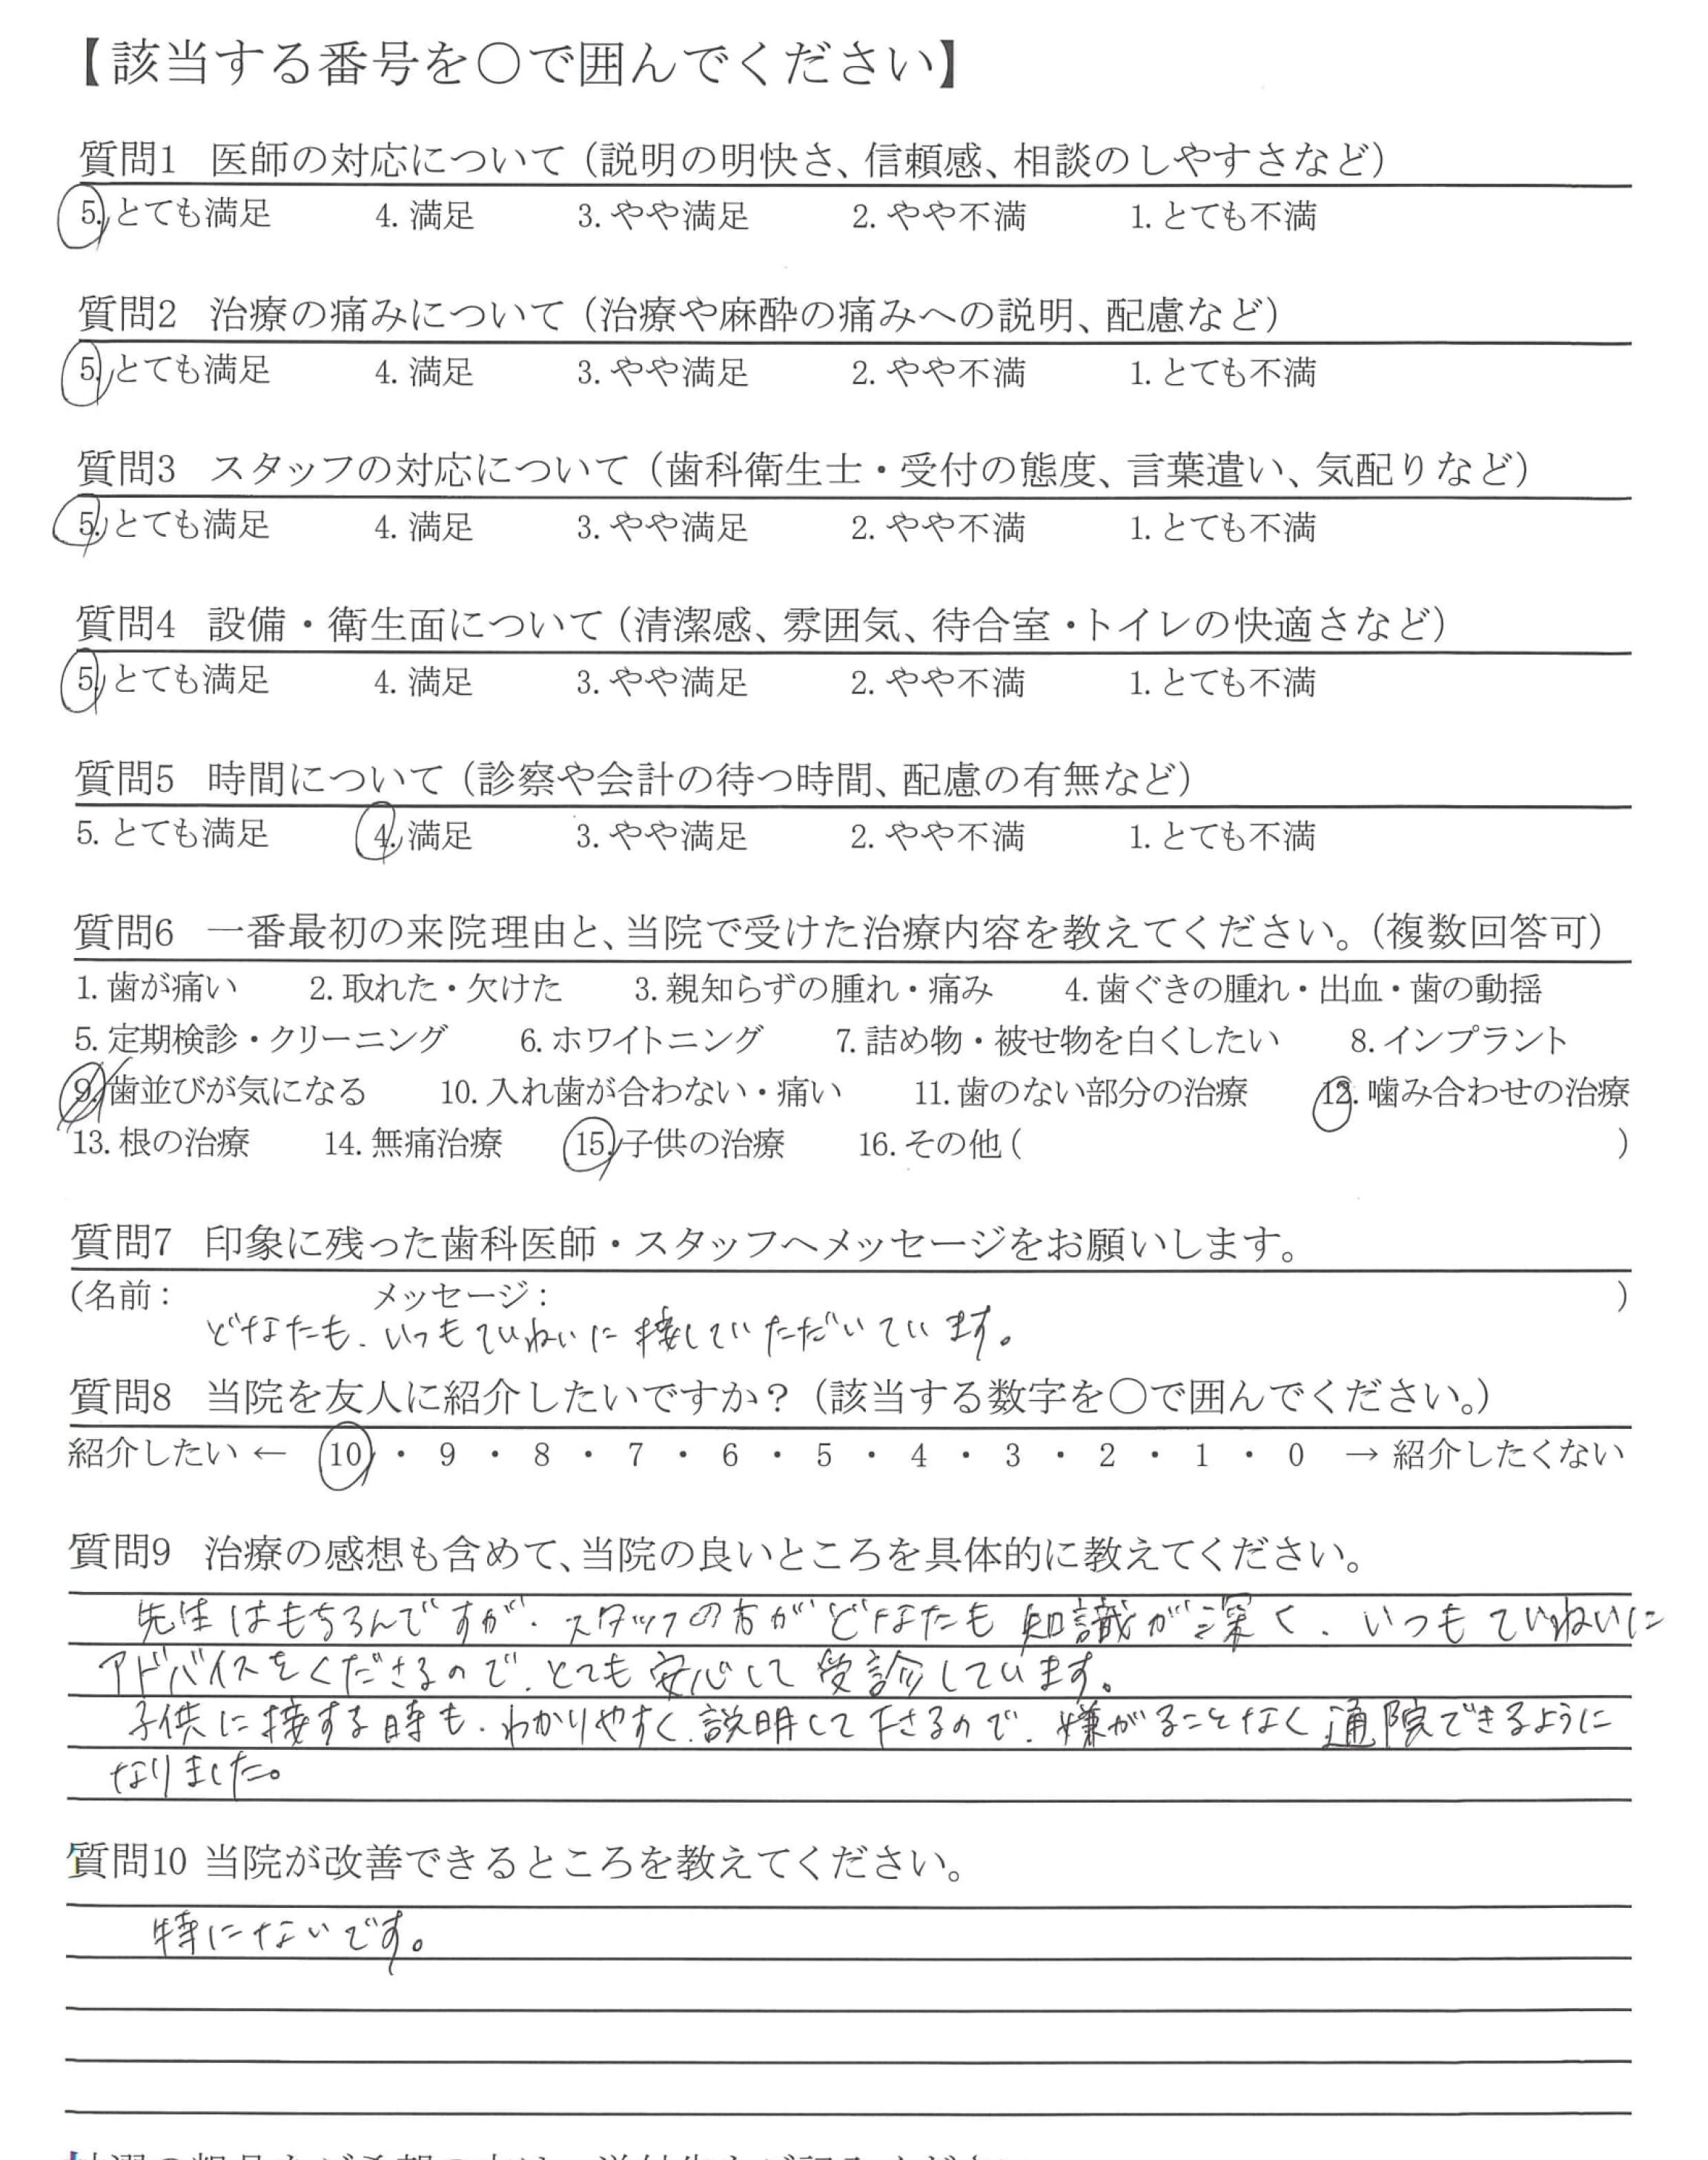 【該当する番号を○で囲んでください】
質問1 医師の対応について（説明の明快さ、信頼感、相談のしやすさなど）
5. とても満足 4. 満足 3. やや満足 2. やや不満 1. とても不満
質問2 治療の痛みについて（治療や麻酔の痛みへの説明、配慮など）
5. とても満足 4. 満足 3. やや満足 2. やや不満 1. とても不満
質問3 スタッフの対応について（歯科衛生士・受付の態度、言葉遣い、気配りなど）
5. とても満足 4. 満足 3. やや満足 2. やや不満 1. とても不満
質問4 設備・衛生面について（清潔感、雰囲気、待合室・トイレの快適さなど）
5. とても満足 4. 満足 3. やや満足 2. やや不満 1. とても不満
質問5 時間について（診察や会計の待つ時間、配慮の有無など）
5. とても満足 4. 満足 3. やや満足 2. やや不満 1. とても不満
質問6 一番最初の来院理由と、当院で受けた治療内容を教えてください。（複数回答可）
1. 歯が痛い 2. 取れた・欠けた 3. 親知らずの腫れ・痛み 4. 歯ぐきの腫れ・出血・歯の動揺
5. 定期検診・クリーニング 6. ホワイトニング 7. 詰め物・被せ物を白くしたい 8. インプラント
9. 歯並びが気になる 10. 入れ歯が合わない・痛い 11. 歯のない部分の治療 12. 噛み合わせの治療
13. 根の治療 14. 無痛治療 15. 子供の治療 16. その他（ ）
質問7 印象に残った歯科医師・スタッフへメッセージをお願いします。
（名前： メッセージ： ）
どなたも、いつもていねいに接していただいています。
質問8 当院を友人に紹介したいですか？（該当する数字を○で囲んでください。）
紹介したい ← 10 ・ 9 ・ 8 ・ 7 ・ 6 ・ 5 ・ 4 ・ 3 ・ 2 ・ 1 ・ 0 → 紹介したくない
質問9 治療の感想も含めて、当院の良いところを具体的に教えてください。
先生はもちろんですが、スタッフの方がどなたも知識が深く、いつもていねいに
アドバイスをくださるので、とても安心して受診しています。
子供に接する時も、わかりやすく、説明して下さるので、嫌がることなく通院できるように
なりました。
質問10 当院が改善できるところを教えてください。
特にないです。